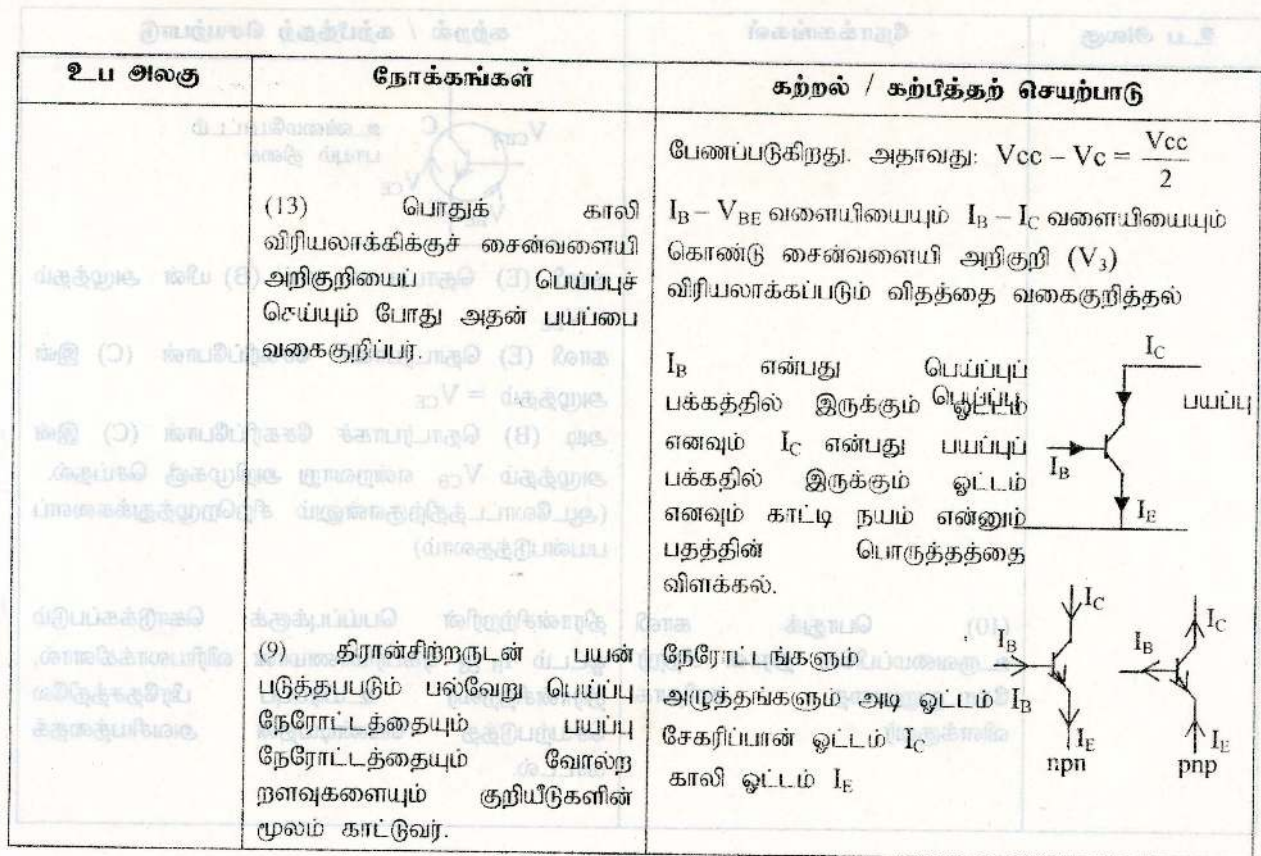 உப அலகு
நோக்கங்கள்
கற்றல் / கற்பித்தற் செயற்பாடு
பேணப்படுகிறது. அதாவது: Vcc – Vc = Vcc / 2
(13) பொதுக் காலி
விரியலாக்கிக்குச் சைன்வளையி
அறிகுறியைப் பெய்ப்புச்
செய்யும் போது அதன் பயப்பை
வகைகுறிப்பர்.
I_B – V_BE வளையியையும் I_B – I_C வளையியையும்
கொண்டு சைன்வளையி அறிகுறி (V_3)
விரியலாக்கப்படும் விதத்தை வகைகுறித்தல்
I_B என்பது பெய்ப்புப்
பக்கத்தில் இருக்கும் ஓட்டம்
எனவும் I_C என்பது பயப்புப்
பக்கதில் இருக்கும் ஓட்டம்
எனவும் காட்டி நயம் என்னும்
பதத்தின் பொருத்தத்தை
விளக்கல்.
பெய்ப்பு
I_C
பயப்பு
I_B
I_E
(9) திரான்சிற்றருடன் பயன்
படுத்தபபடும் பல்வேறு பெய்ப்பு
நேரோட்டத்தையும் பயப்பு
நேரோட்டத்தையும் வோல்ற
றளவுகளையும் குறியீடுகளின்
மூலம் காட்டுவர்.
நேரோட்டங்களும்
அழுத்தங்களும் அடி ஓட்டம் I_B
சேகரிப்பான் ஓட்டம் I_C
காலி ஓட்டம் I_E
I_C
I_B
I_E
npn
I_C
I_B
I_E
pnp